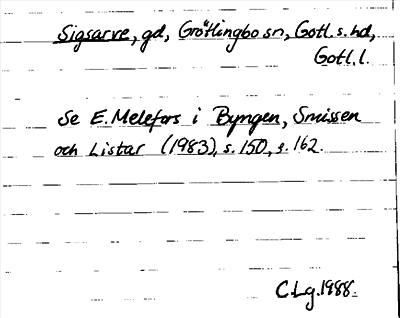 Sigsarve, gd, Grötlingbo sn, Gotl. s. hd,
Gotl. l.
Se E. Melefors i Byngen, Smissen
och Listar (1983), s. 150, s. 162.
C.Lg. 1988.